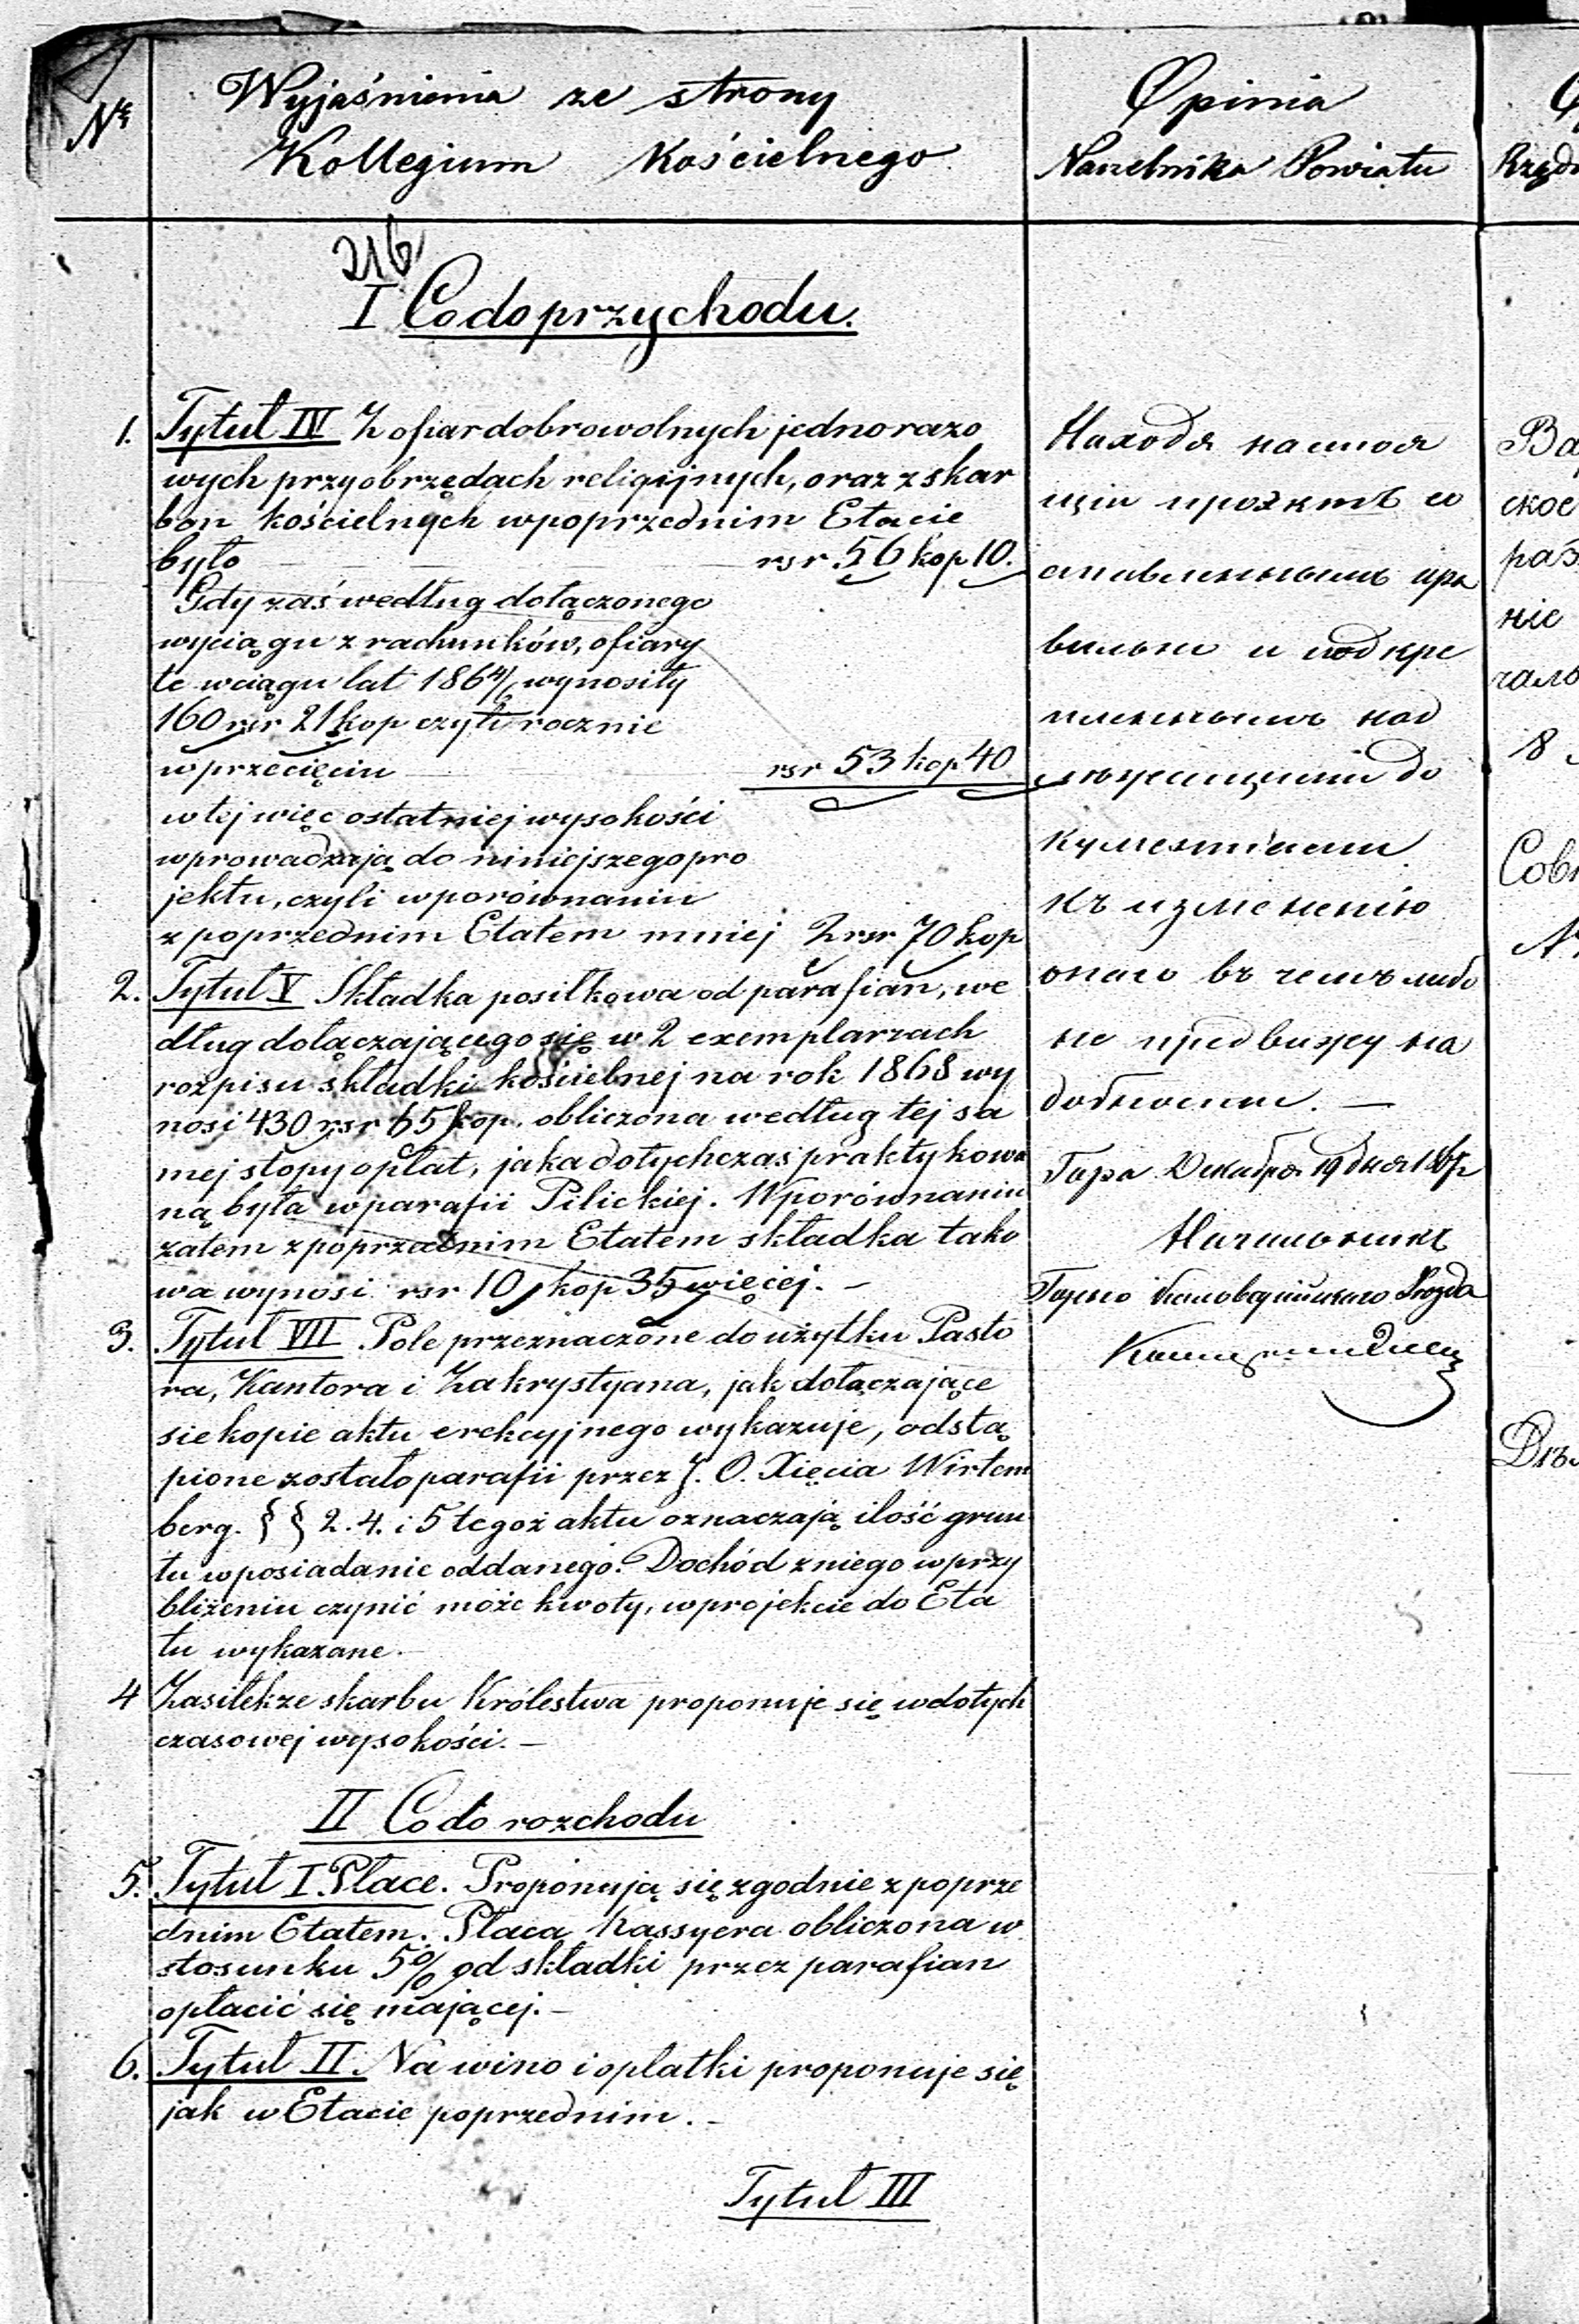 Nr
Wyjaśnienia ze strony
Kollegium Kościelnego
Opinia
Naczelnika Powiatu
216
I Co do przychodu.
1. Tytuł IV Z ofiar dobrowolnych jednorazo
wych przy obrzędach religijnych, oraz z skar
bon kościelnych w poprzednim Etacie
było rsr 56 kop 10.
Gdy zaś według dołączonego
wyciągu z rachunków, ofiary
te w ciągu lat 1864/6 wynosiły
160 rsr 21 kop czyli rocznie
w przecięciu rsr 53 kop 40
w tej więc ostatniej wysokości
wprowadzają do niniejszego pro
jektu, czyli w porównaniu
z poprzednim Etatem mniej 2 rsr 70 kop
2. Tytuł V Składka posiłkowa od parafian, we
dług dołączającego się w 2 exemplarzach
rozpisu składki kościelnej na rok 1868 wy
nosi 430 rsr 65 kop. obliczona według tej sa
mej stopy opłat, jaka dotychczas praktykowa
ną była w parafii Pilickiej. W porównaniu
zatem z poprzednim Etatem składka tako
wa wynosi rsr 10 kop 35 więcej. –
3. Tytuł VII Pole przeznaczone do użytku Pasto
ra, Kantora i Zakrystyana, jak dołączające
sie kopie aktu erekcyjnego wykazuje, odstą
pione zostało parafii przez J. O. Xięcia Wirtem
berg. § § 2. 4. i 5 tegoż aktu oznaczają ilość grun
tu w posiadanie oddanego. Dochód z niego w przy
bliżeniu czynić może kwoty, w projekcie do Eta
tu wykazane. –
4 Zasiłek ze skarbu Królestwa proponuje się w dotych
czasowej wysokości. –
II Co do rozchodu
5. Tytuł I. Płace. Proponują się zgodnie z poprze
dnim Etatem. Płaca Kassyera obliczona w
stosunku 5% od składki przez parafian
opłacić się mającej. –
6. Tytuł II. Na wino i opłatki proponuje się
jak w Etacie poprzednim. –
Tytuł III
Находя настоя
щій проэктъ со
ставленнымъ пра
вильно и подкре
пленнымъ над
лежащими до
кументами
къ измененію
онаго въ чемъ либо
не предвижу на
добности. –
Гура Декабря 19 дня
Начальникъ
Гурно Кальварійскаго Уезда